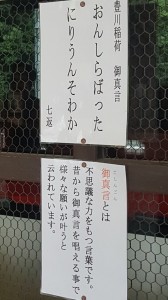 豊川稲荷 御真言
おんしらばった
にりうんそわか
七返
御真言とは
不思議な力をもつ言葉です。
昔から御真言を唱える事で
様々な願いが叶うと
云われています。